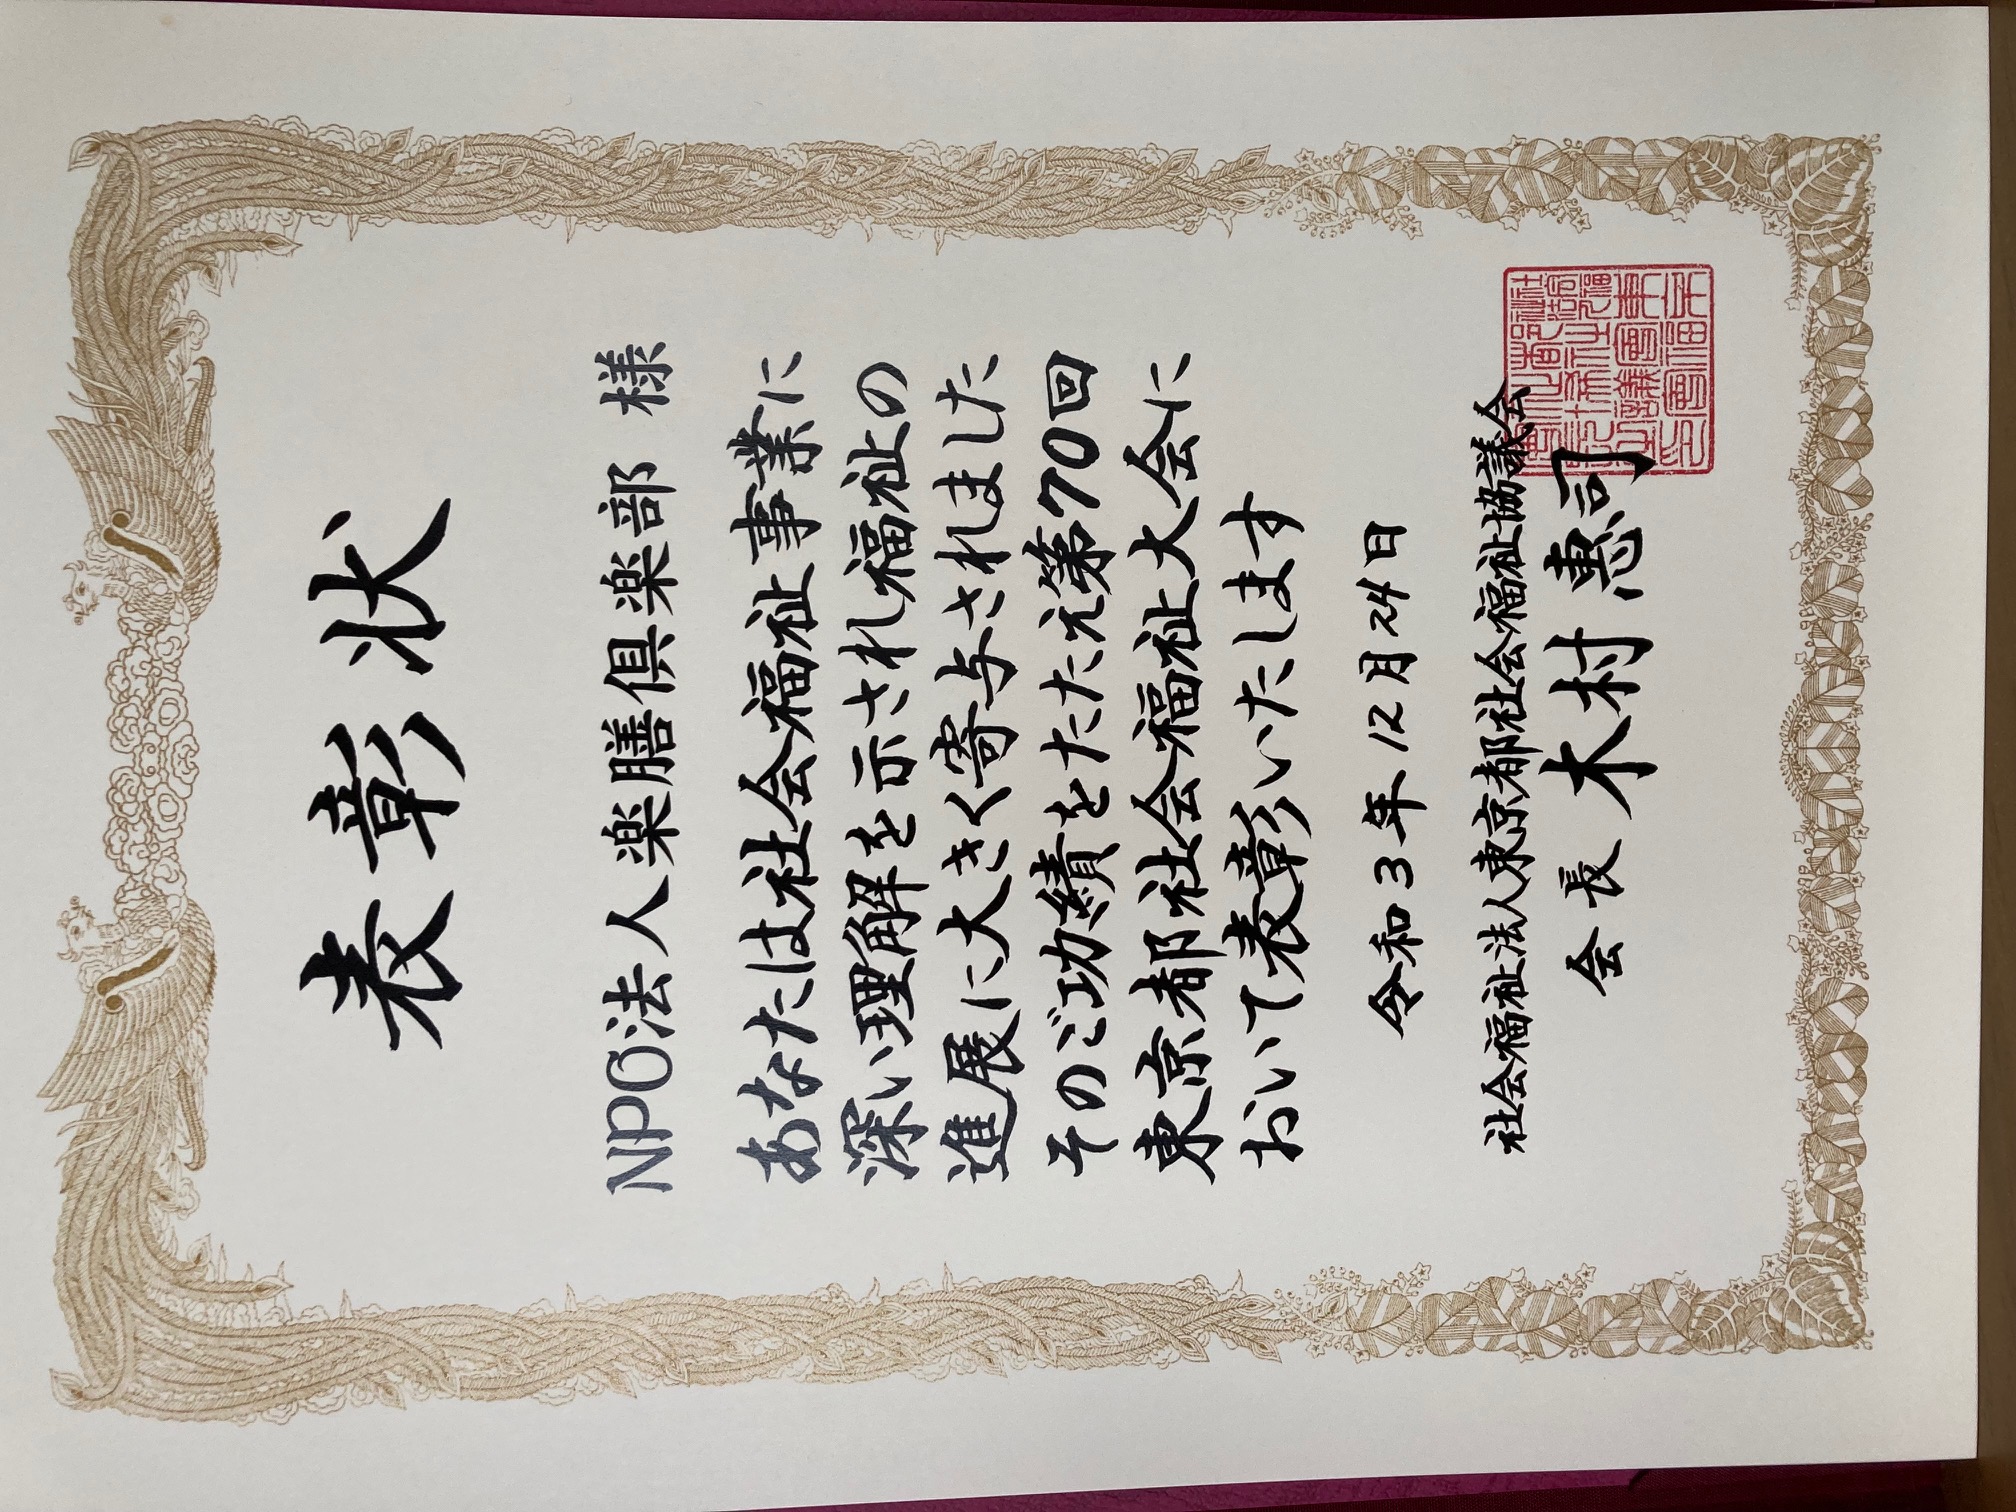 表彰状
NPO法人楽膳倶楽部 様
あなたは社会福祉事業に
深い理解を示され福祉の
進展に大きく寄与されました
そのご功績をたたえ第70回
東京都社会福祉大会に
おいて表彰いたします
令和3年12月24日
社会福祉法人東京都社会福祉協議会
会長 木村惠司